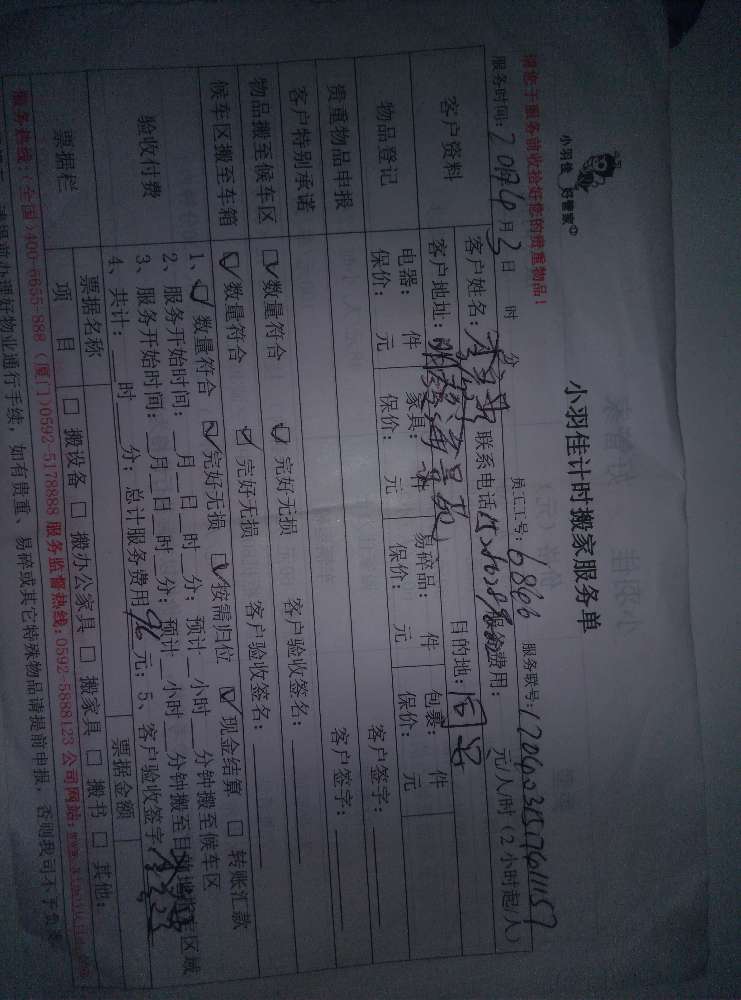 小羽佳 好管家
小羽佳计时搬家服务单
请您于服务前收拾好您的贵重物品！
服务时间：2017年4月3日 时 分 员工工号：6866 服务联号：
客户资料
客户姓名： 联系电话 服务费用： 元/人/时（2小时起/人）
客户地址： 目的地：同安
物品登记
电器： 件 家具： 件 易碎品： 件 包裹： 件
保价： 元 保价： 元 保价： 元 保价： 元
客户签字：
贵重物品申报
客户签字：
客户特别承诺
物品搬至候车区 ☑数量符合 ☑完好无损 客户验收签名：
候车区搬至车箱 ☑数量符合 ☑完好无损 客户验收签名：
验收付费
1、☑数量符合 ☑完好无损 ☑按需归位 ☑现金结算 □转账汇款
2、服务开始时间：__月__日__时__分；预计__小时__分钟搬至候车区
3、服务开始时间：__月__日__时__分；预计__小时__分钟搬至目的地指定区域
4、共计：__时__分；总计服务费用96元；5、客户验收签字
票据栏
票据名称 票据金额
项 目 □搬设备 □搬办公家具 □搬家具 □搬书 □其他：
服务热线：（全国）400-6655-888（厦门）0592-5178888 服务监督热线：0592-5888123 公司网站：
办理好物业通行手续，如有贵重、易碎或其它特殊物品请提前申报，否则我司不予负责